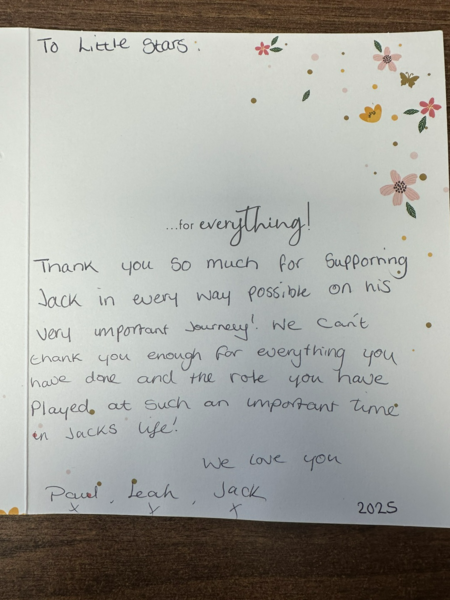 To Little Stars:
...for everything!
Thank you so much for Supporting
Jack in every way possible on his
very important Journey! We Can't
thank you enough for everything you
have done and the role you have
Played at such an important time
in Jacks life!
We love you
Paul, Leah, Jack
x x x
2025